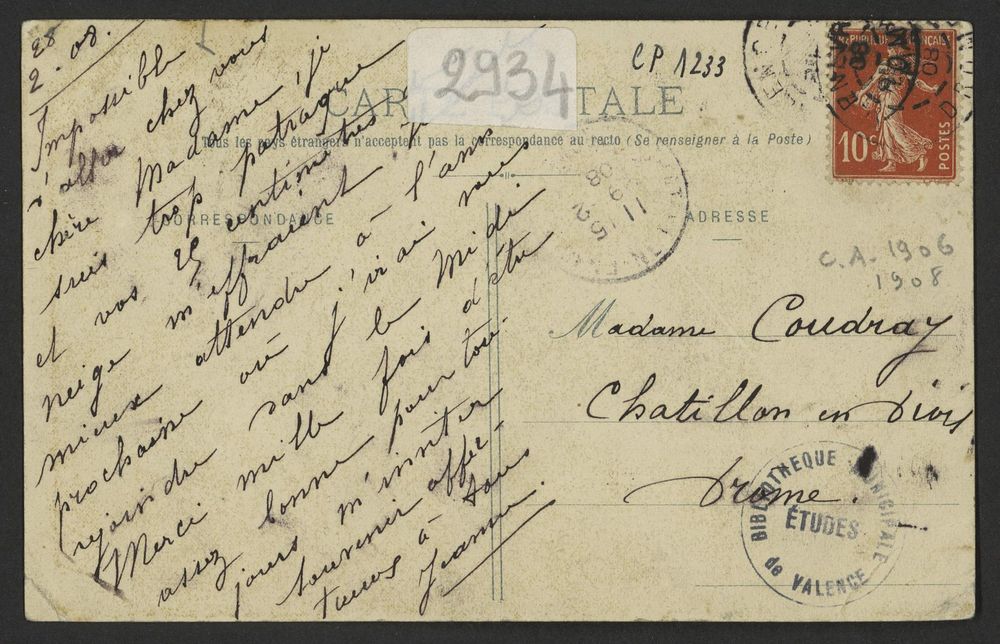 28
2.08.
Impossible
d'aller chez vous
chère Madame j'ai
suis trop patraque
et vos 25 centimètres
neige m'effraient
mieux attendre à l'ann
prochaine où j'irai vous
rejoindre dans le Midi
Merci mille fois d'être
assez bonne pour tou-
jours m'inviter
souvenir affec-
tueux à tous
Jeanne.
2934
CP 1233
CARTE POSTALE
Tous les pays étrangers n'acceptent pas la correspondance au recto (Se renseigner à la Poste)
CORRESPONDANCE
ADRESSE
RÉPUBLIQUE FRANÇAISE
10c
POSTES
15
11 - 2
08
C.A. 1906
1908
Madame Coudray
Chatillon en Diois
Drome.
BIBLIOTHEQUE MUNICIPALE
ÉTUDES
de VALENCE